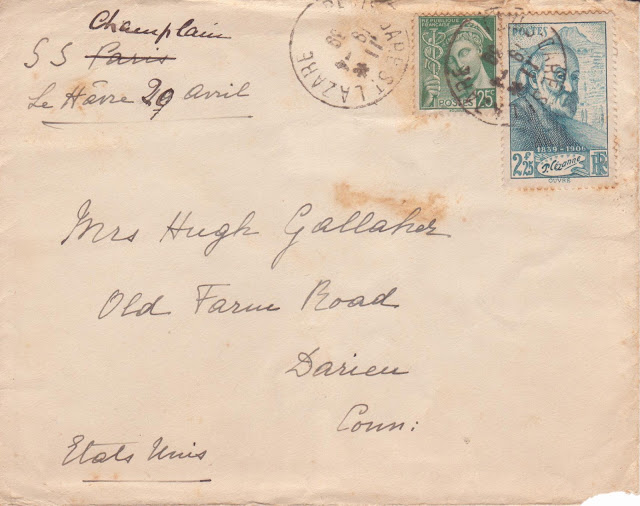 Champlain
SS Paris
Le Hâvre 29 Avril
Mrs Hugh Gallaher
Old Farm Road
Darien
Conn:
Etats Unis
GARE ST LAZARE
RÉPUBLIQUE FRANÇAISE
POSTES 25
POSTES
1839-1906
2F,25 P. Cezanne RF